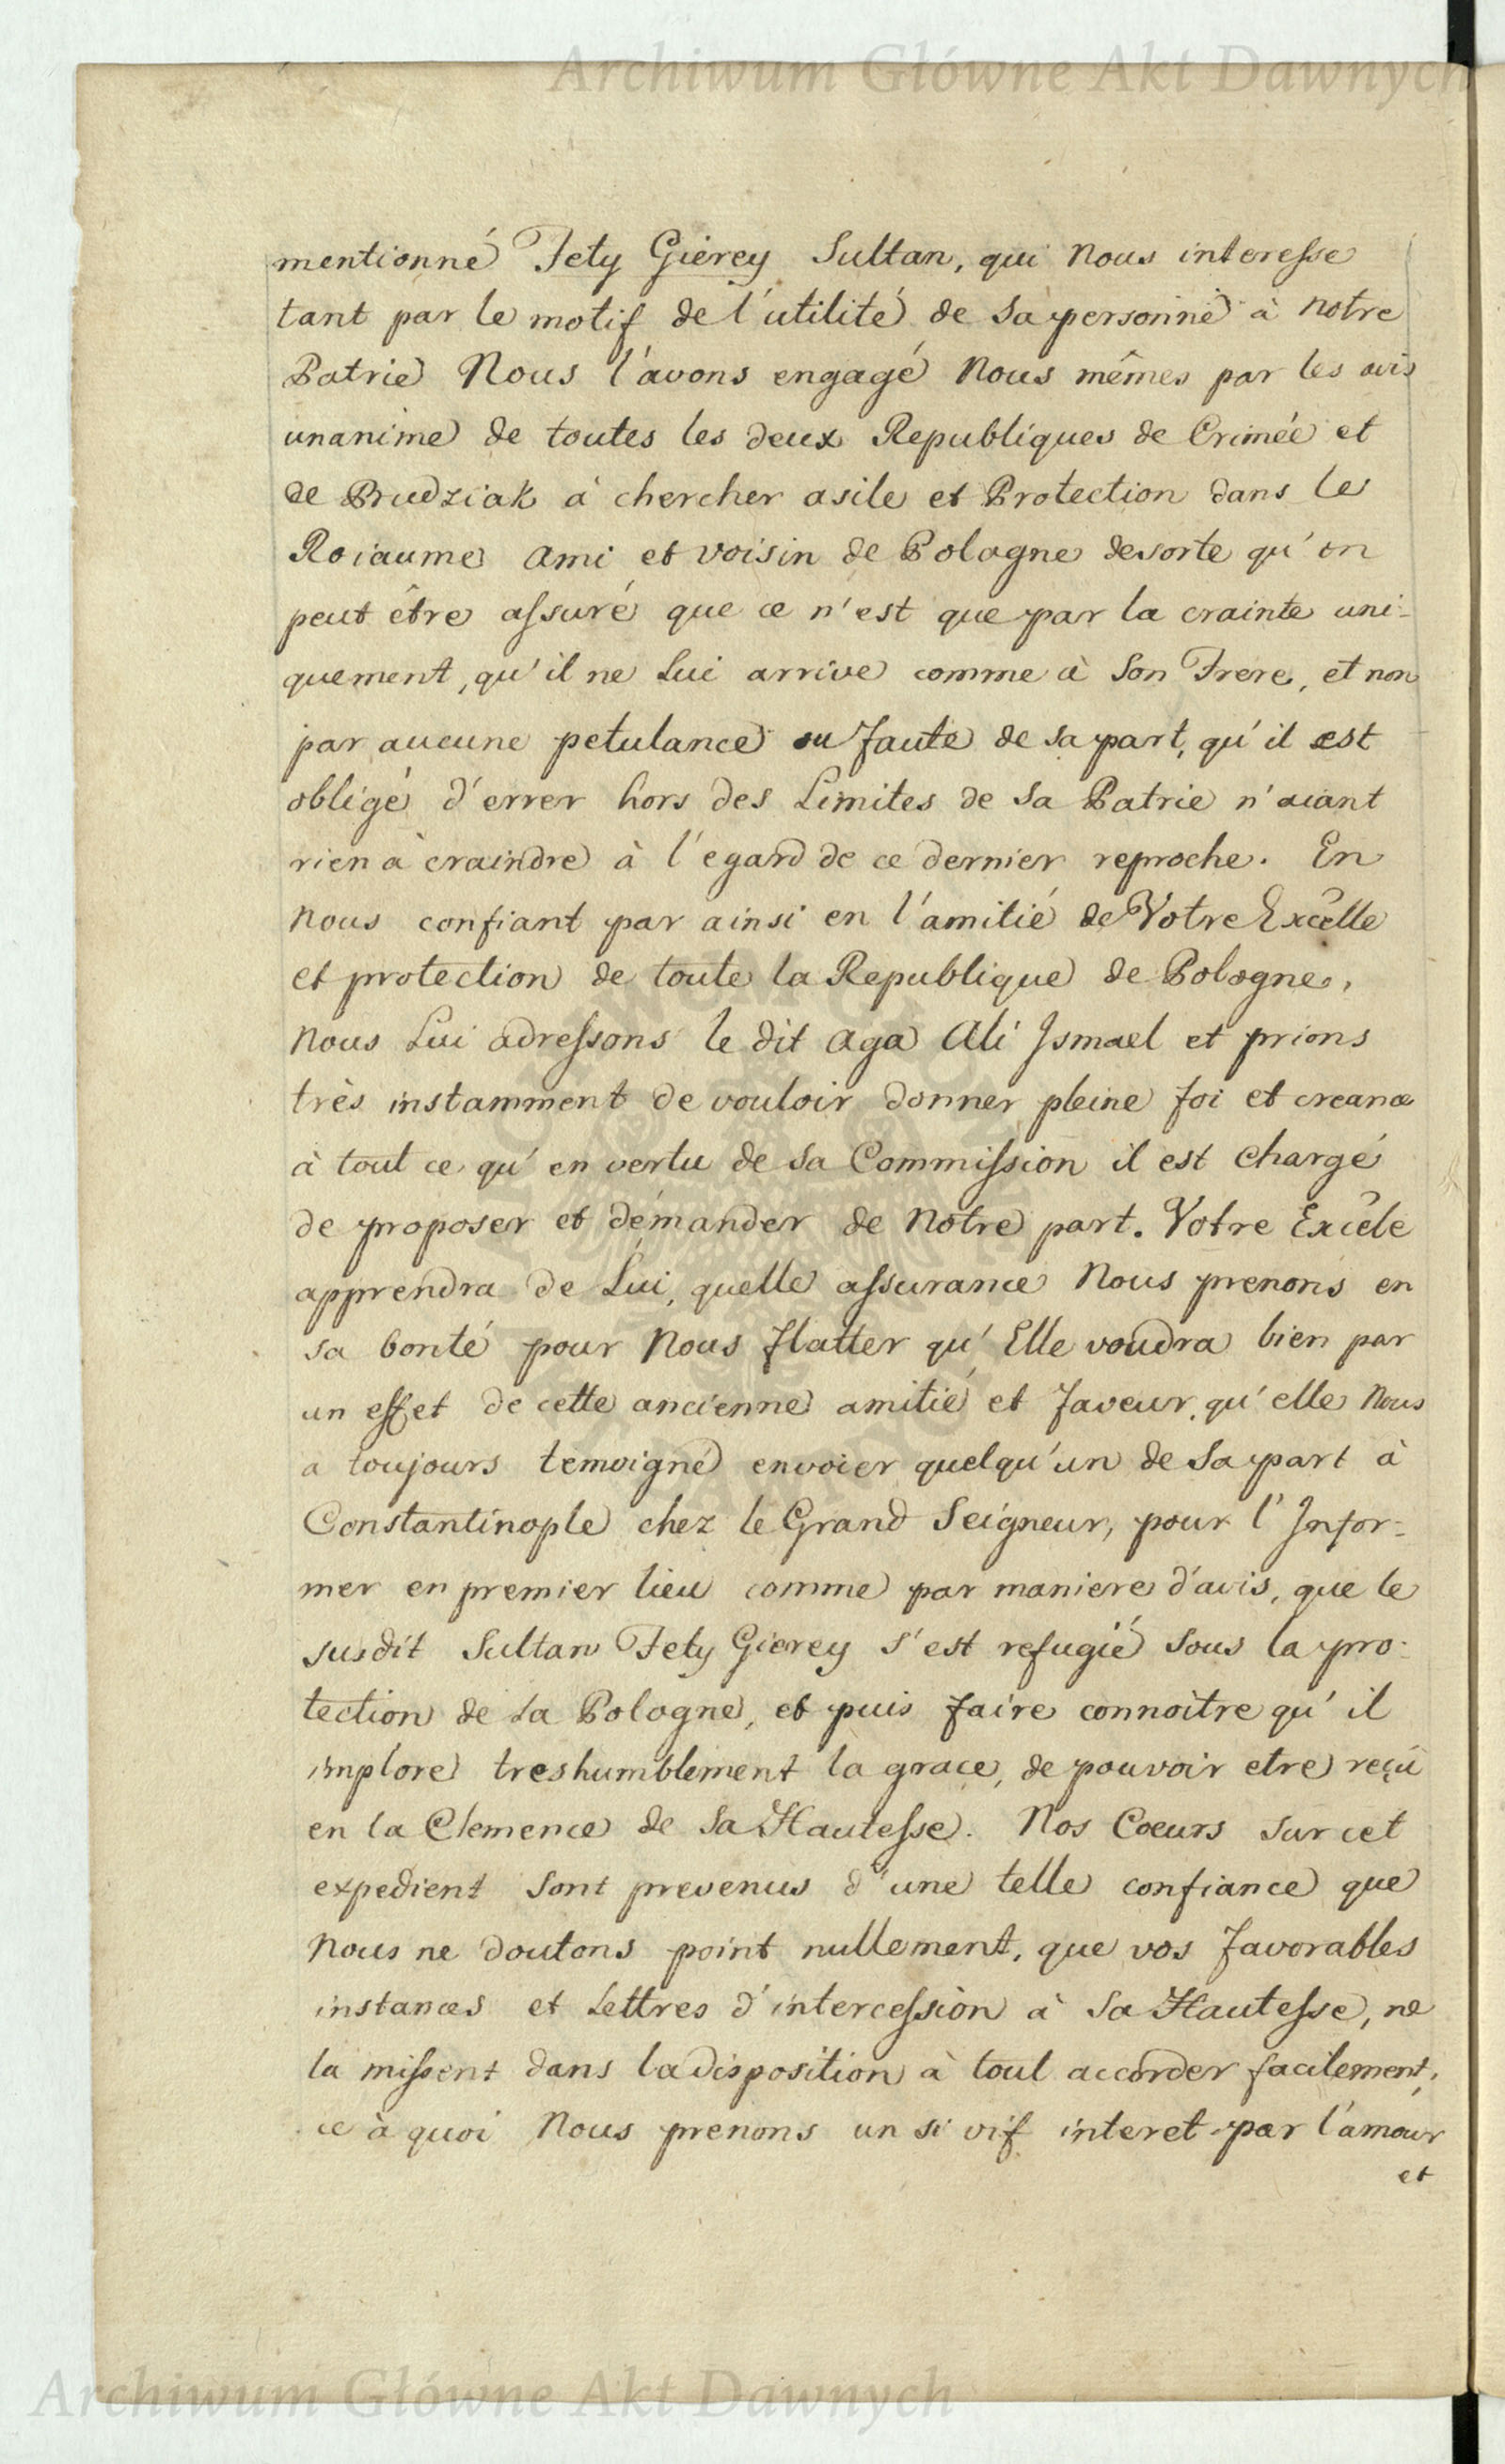 Archiwum Główne Akt Dawnych
mentionné Fety Gierey Sultan, qui Nous interesse
tant par le motif de l'utilité de sa personne à notre
Patrie Nous l'avons engagé Nous mêmes par les avis
unanime de toutes les deux Republiques de Crimée et
de Brudziak à chercher asile et Protection dans le
Roiaume Ami et voisin de Pologne desorte qu'on
peut être assuré que ce n'est que par la crainte uni-
quement, qu'il ne Lui arrive comme à Son Frere, et non
par aucune petulance ou faute de sa part, qu'il est
obligé d'errer hors des Limites de Sa Patrie n'aiant
rien à craindre à l'egard de ce dernier reproche. En
Nous confiant par ainsi en l'amitié de Votre Excelle
et protection de toute la Republique de Pologne,
Nous Lui adressons le dit Aga Ali Ismael et prions
très instamment de vouloir donner pleine foi et creance
à tout ce qu'en vertu de Sa Commission il est Chargé
de proposer et demander de Notre part. Votre Excele
apprendra de Lui, quelle assurance Nous prenons en
sa bonté pour Nous flatter qu'Elle voudra bien par
un effet de cette ancienne amitié et faveur, qu'elle Nous
a toujours temoigné envoier quelqu'un de Sa part à
Constantinople chez le Grand Seigneur, pour l'Infor-
mer en premier lieu comme par maniere d'avis, que le
susdit Sultan Fety Gierey s'est refugié Sous la pro-
tection de la Pologne, et puis faire connoitre qu'il
implore treshumblement la grace, de pouvoir etre reçu
en la Clemence de Sa Hautesse. Nos Coeurs Sur cet
expedient Sont prevenus d'une telle confiance que
Nous ne doutons point nullement, que vos favorables
instances et Lettres d'intercession à Sa Hautesse, ne
la missent dans la disposition à tout accorder facilement,
ce à quoi Nous prenons un si vif interet par l'amour
et
Archiwum Główne Akt Dawnych